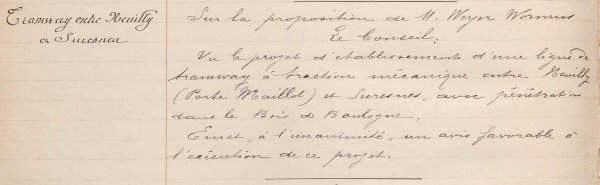 Tramway entre Neuilly
et Suresnes
Sur la proposition de M. Weyer Wormus
Le Conseil:
Vu le projet d'établissement d'une ligne de
tramway à traction mécanique entre Neuilly
(Porte Maillot) et Suresnes, avec pénétration
dans le Bois de Boulogne,
Emet, à l'unanimité, un avis favorable à
l'exécution de ce projet.